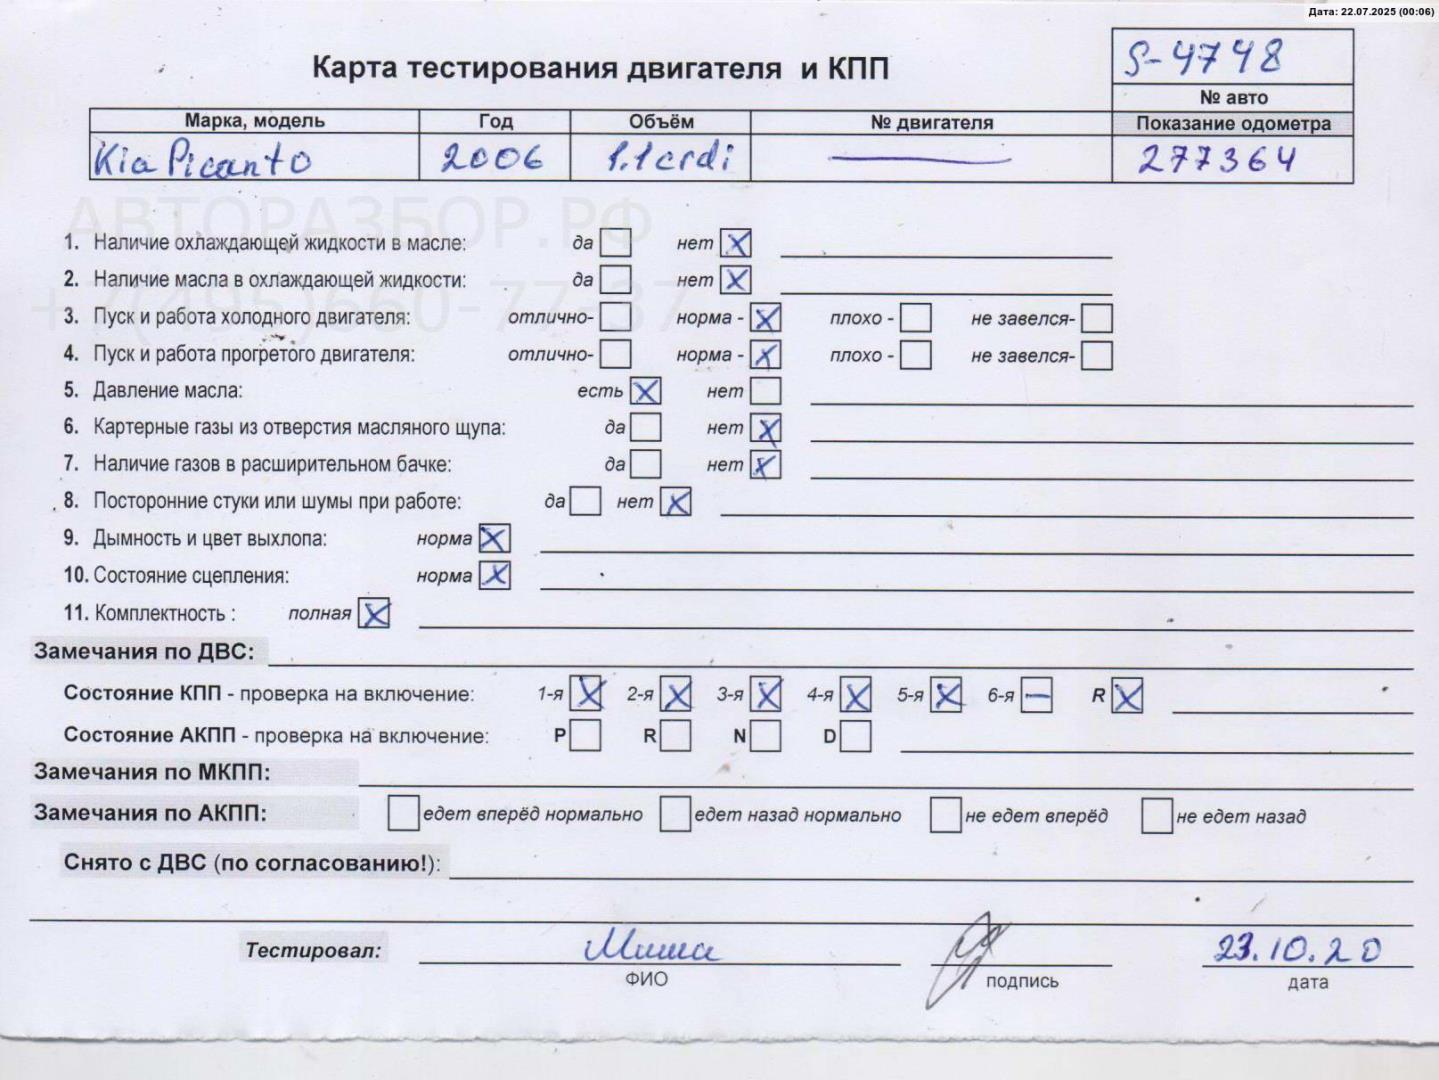 Дата: 22.07.2025 (00:06)
S-4748
Карта тестирования двигателя и КПП
№ авто
Марка, модель Год Объём № двигателя Показание одометра
Kia Picanto 2006 1.1 crdi — 277364
АВТОРАЗБОР.РФ
1. Наличие охлаждающей жидкости в масле: да нет X
2. Наличие масла в охлаждающей жидкости: да нет X
+7(495)660-77-37
3. Пуск и работа холодного двигателя: отлично- норма - X плохо - не завелся-
4. Пуск и работа прогретого двигателя: отлично- норма - X плохо - не завелся-
5. Давление масла: есть X нет
6. Картерные газы из отверстия масляного щупа: да нет X
7. Наличие газов в расширительном бачке: да нет X
8. Посторонние стуки или шумы при работе: да нет X
9. Дымность и цвет выхлопа: норма X
10. Состояние сцепления: норма X
11. Комплектность : полная X
Замечания по ДВС:
Состояние КПП - проверка на включение: 1-я X 2-я X 3-я X 4-я X 5-я X 6-я — R X
Состояние АКПП - проверка на включение: P R N D
Замечания по МКПП:
Замечания по АКПП: едет вперёд нормально едет назад нормально не едет вперёд не едет назад
Снято с ДВС (по согласованию!):
Тестировал: Миша 23.10.20
ФИО подпись дата